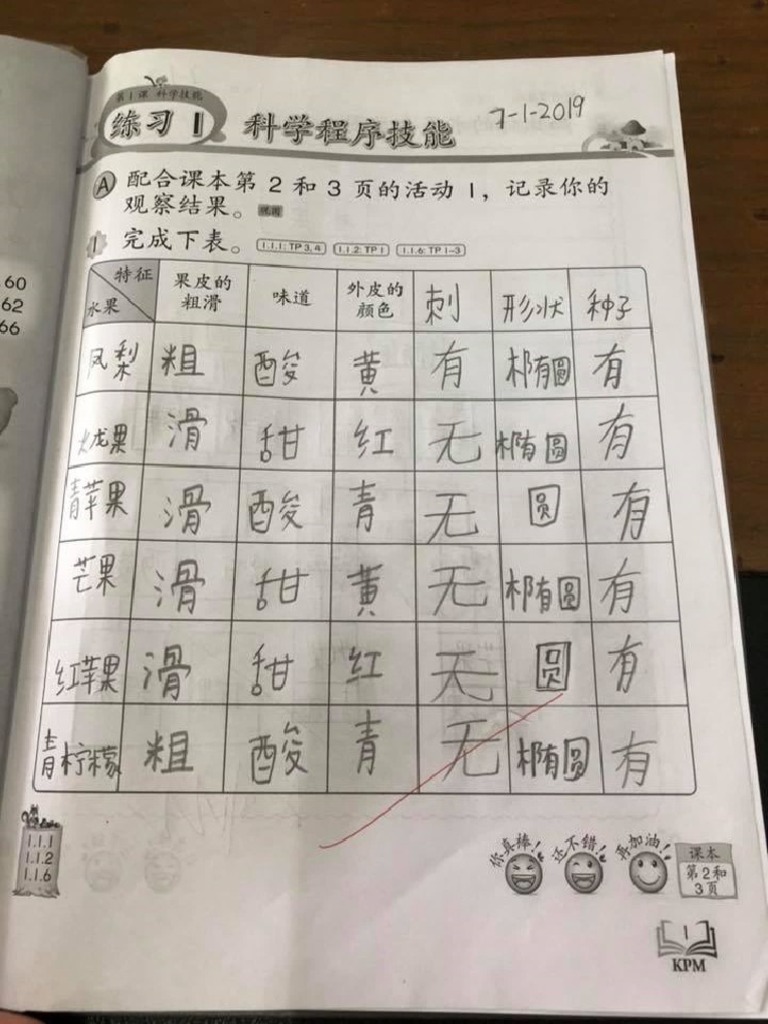 第1课 科学技能
练习 1 科学程序技能
7-1-2019
A 配合课本第 2 和 3 页的活动 1，记录你的
观察结果。
1 完成下表。 1.1.1: TP 3, 4 1.1.2: TP 1 1.1.6: TP 1–3
特征 水果 果皮的粗滑 味道 外皮的颜色 刺 形状 种子
凤梨 粗 酸 黄 有 椭圆 有
火龙果 滑 甜 红 无 椭圆 有
青苹果 滑 酸 青 无 圆 有
芒果 滑 甜 黄 无 椭圆 有
红苹果 滑 甜 红 无 圆 有
青柠檬 粗 酸 青 无 椭圆 有
60
62
66
1.1.1
1.1.2
1.1.6
你真棒! 还不错! 再加油!
课本
第2和
3页
1
KPM